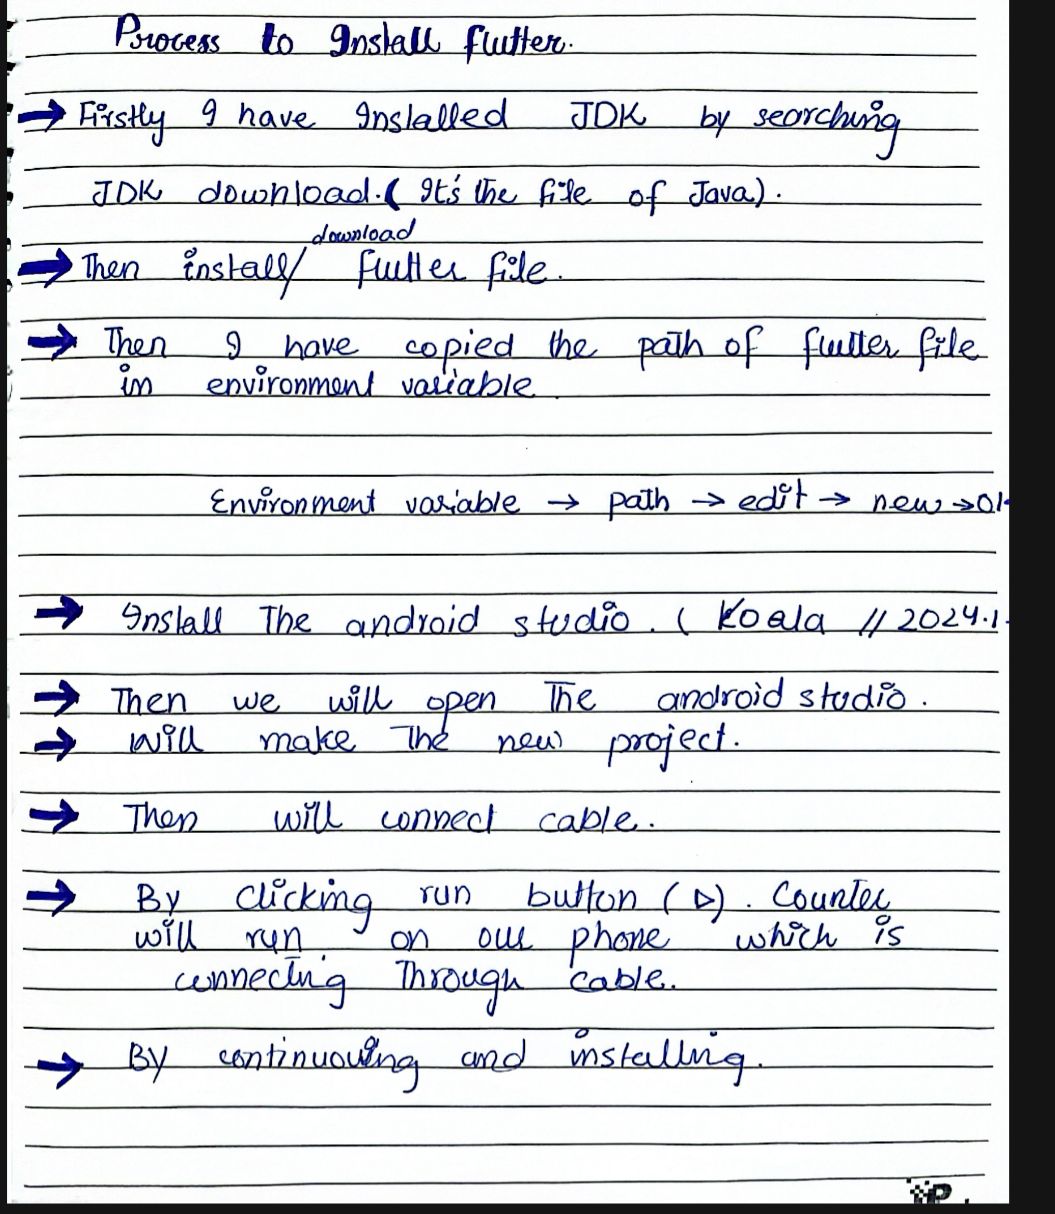 Process to Install flutter.
→ Firstly I have Installed JDK by searching
JDK download. ( It's the file of Java).
download
→ Then install/ flutter file.
→ Then I have copied the path of flutter file
in environment variable
Environment variable → path → edit → new →
→ Install The android studio. ( Koala // 2024.1.
→ Then we will open The android studio.
→ Will make The new project.
→ Then will connect cable.
→ By clicking run button (▷). Counter
will run on our phone which is
connecting Through cable.
→ By continuouing and installing.